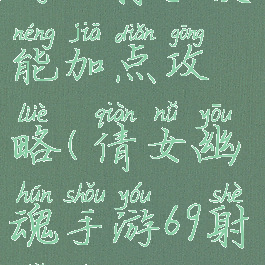 néng jiā diǎn gōng
能加点攻
lüè qiàn nǚ yōu
略(倩女幽
hún shǒu yóu shè
魂手游69射